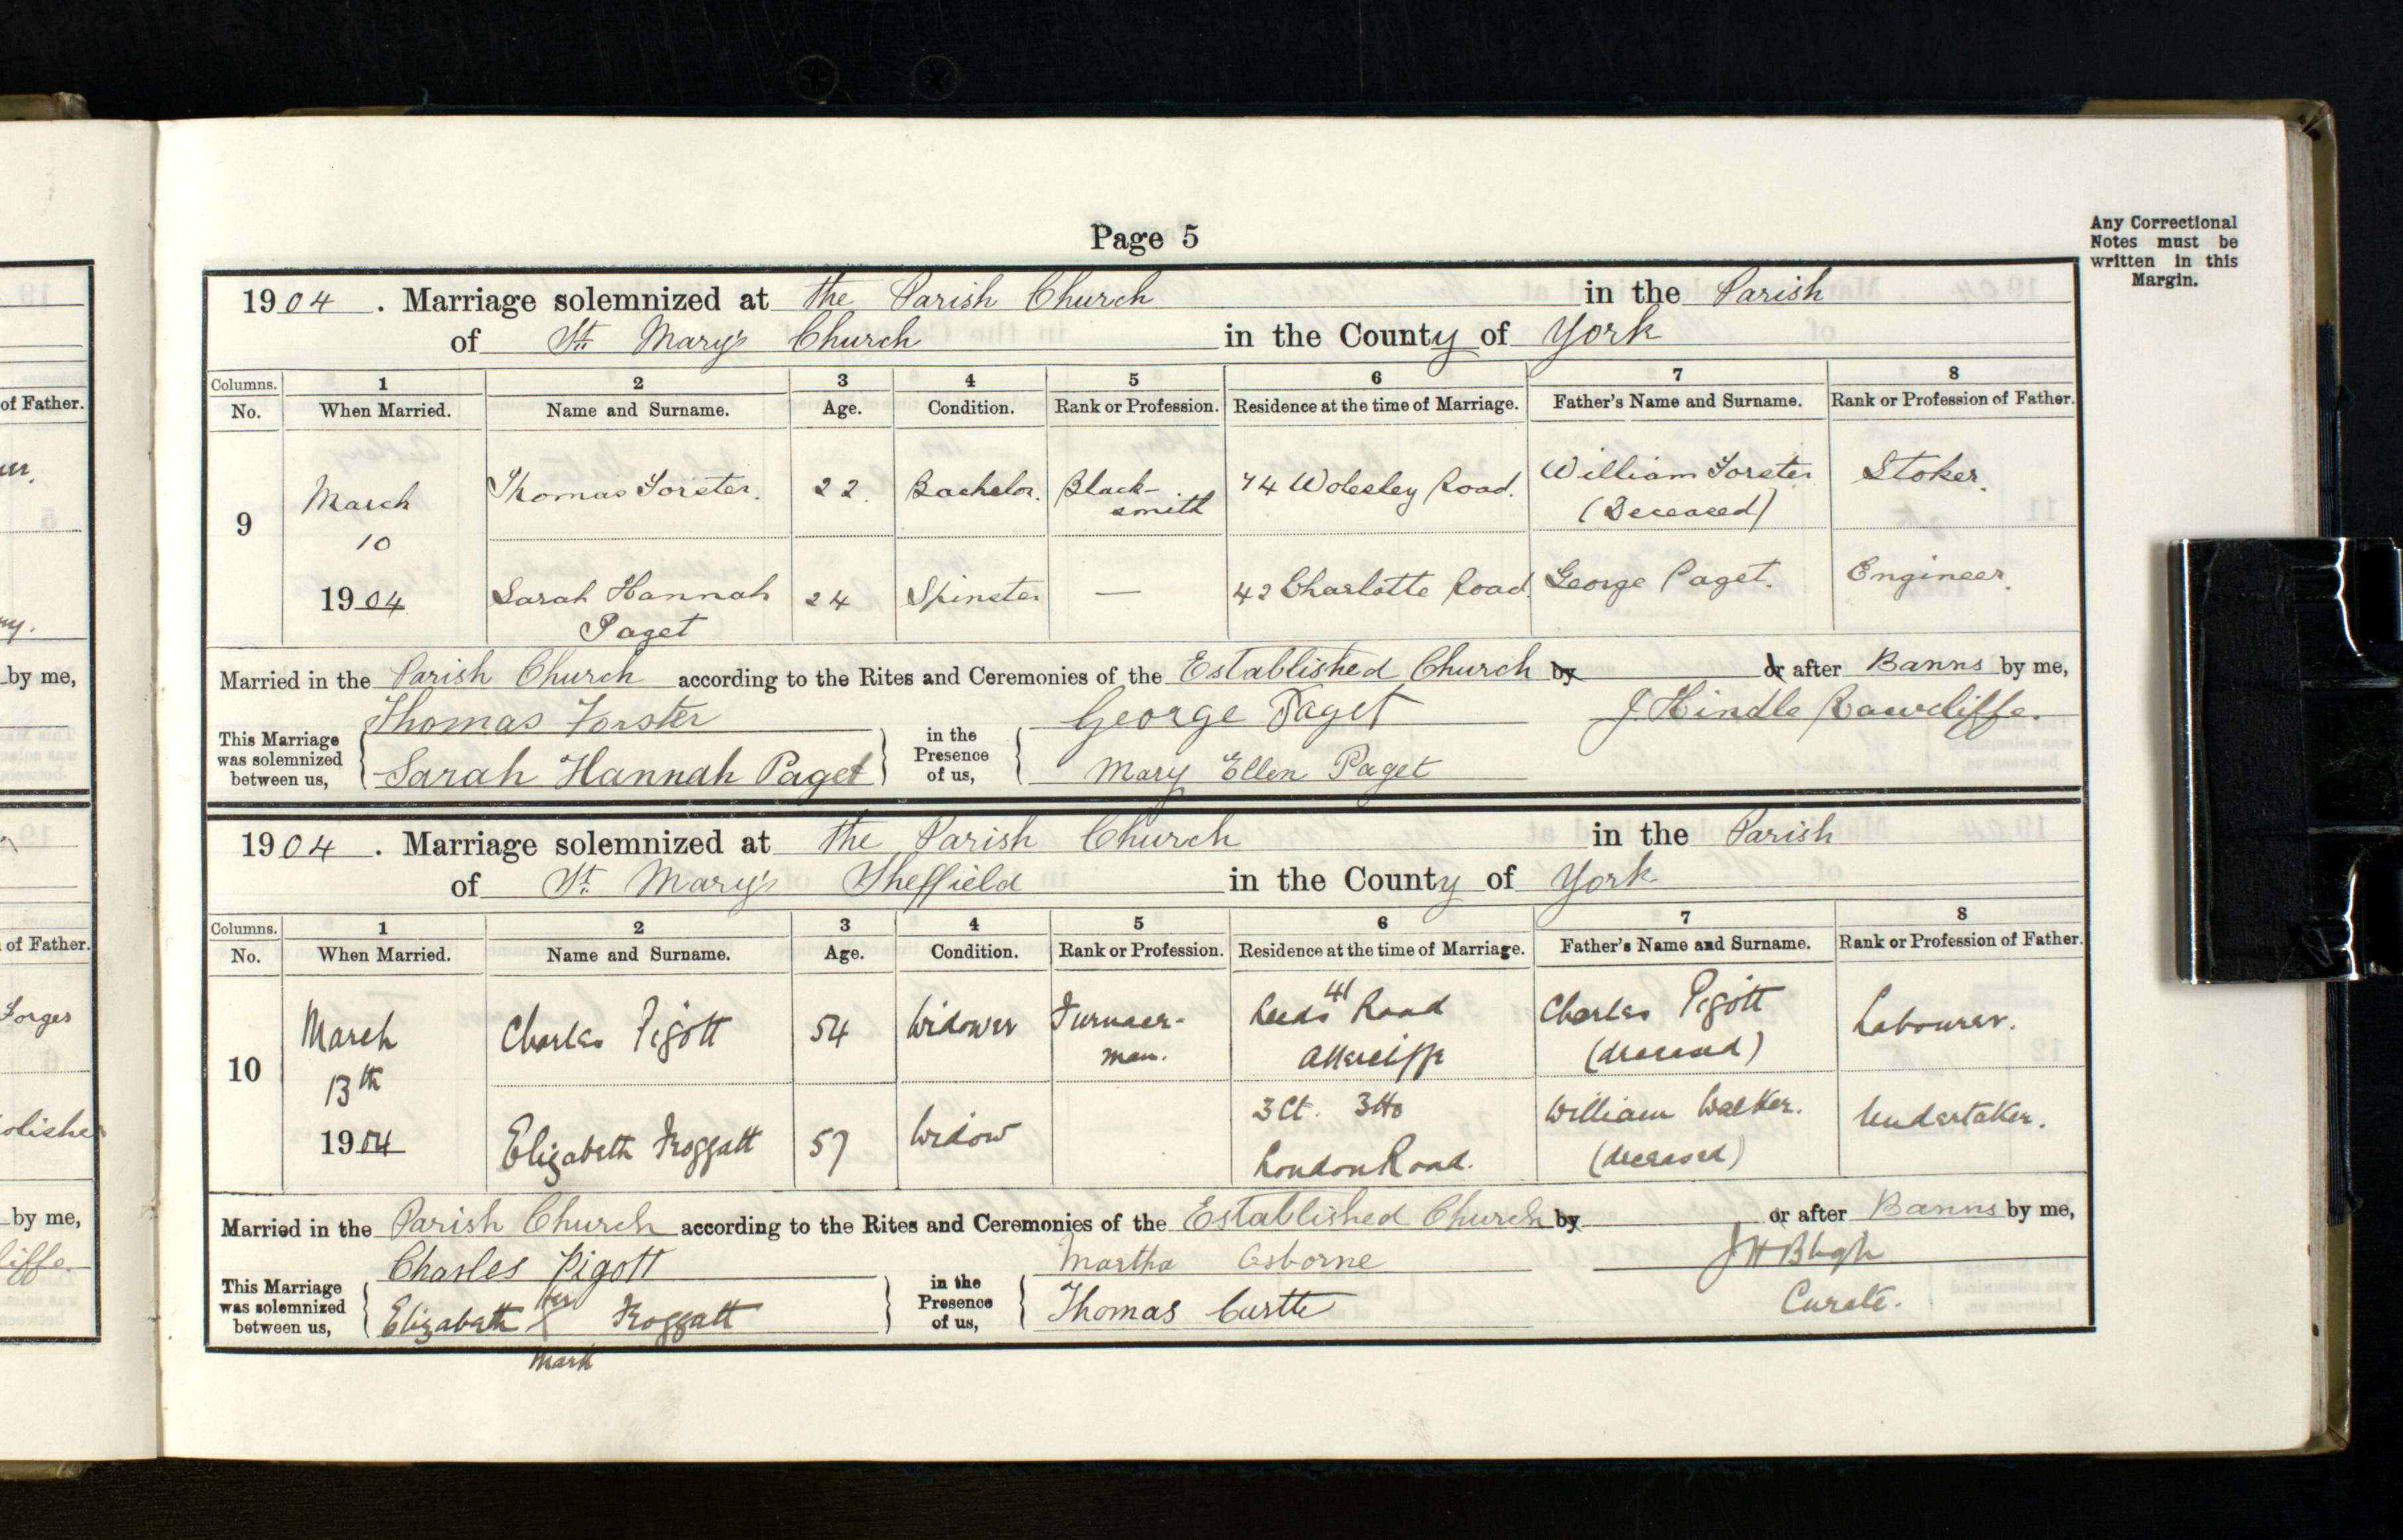 Page 5
Any Correctional
Notes must be
written in this
Margin.
1904. Marriage solemnized at the Parish Church in the Parish
of St. Mary's Church in the County of York
Columns. 1 2 3 4 5 6 7 8
No. When Married. Name and Surname. Age. Condition. Rank or Profession. Residence at the time of Marriage. Father's Name and Surname. Rank or Profession of Father.
9
March
10
1904
Thomas Forster. 22. Bachelor. Black-
smith
74 Wolesley Road. William Forster
(Deceased)
Stoker.
Sarah Hannah
Paget
24 Spinster — 42 Charlotte Road. George Paget. Engineer.
Married in the Parish Church according to the Rites and Ceremonies of the Established Church by or after Banns by me,
Thomas Forster George Paget J. Hindle Rawcliffe.
This Marriage
was solemnized
between us,
Sarah Hannah Paget
in the
Presence
of us,
Mary Ellen Paget
1904. Marriage solemnized at the Parish Church in the Parish
of St. Mary's Sheffield in the County of York
Columns. 1 2 3 4 5 6 7 8
No. When Married. Name and Surname. Age. Condition. Rank or Profession. Residence at the time of Marriage. Father's Name and Surname. Rank or Profession of Father.
10
March
13th
1904
Charles Pigott 54 Widower Furnace-
man.
41
Leeds Road
Attercliffe
Charles Pigott
(deceased)
Labourer.
Elizabeth Froggatt 57 Widow
3 Ct. 3 Ho
London Road.
William Walker.
(deceased)
Undertaker.
Married in the Parish Church according to the Rites and Ceremonies of the Established Church by or after Banns by me,
Charles Pigott Martha Osborne J H Bligh
Curate.
This Marriage
was solemnized
between us,
Elizabeth her X Froggatt
mark
in the
Presence
of us,
Thomas
of Father.
by me,
of Father.
Forges
olisher
by me,
liffe.